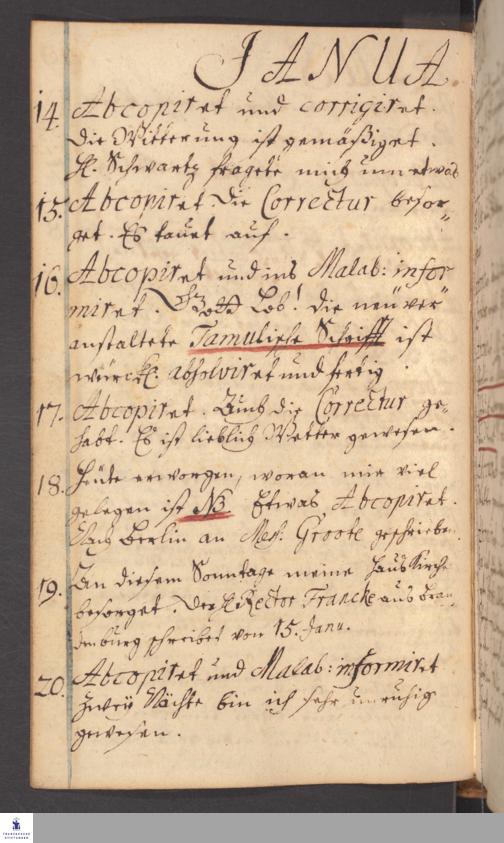 JANUA
14. Abcopiret und corrigiret.
Die Witterung ist gemäßiget.
H. Schwartz fragete mich um etwas
15. Abcopiret die Correctur besor-
get. Es tauet auf.
16. Abcopiret und ins Malab: infor
miret. Gott Lob! die neü ver-
anstaltete Tamulische Schrifft ist
würckl. absolviret und fertig
17. Abcopiret. Auch die Correctur ge-
habt. Es ist lieblich Wetter gewesen.
18. Heüte erwogen, woran mir viel
gelegen ist NB Etwas Abcopiret.
Nach Berlin an Mes. Groote geschrieben
19. An diesem Sonntage meine HausKirche
besorget. Der H. Rector Francke aus Bran
denburg schreibet von 15. Janu.
20. Abcopiret und Malab: informiret
Zwey Nächte bin ich sehr unruhig
gewesen.
FRANCKESCHE
STIFTUNGEN